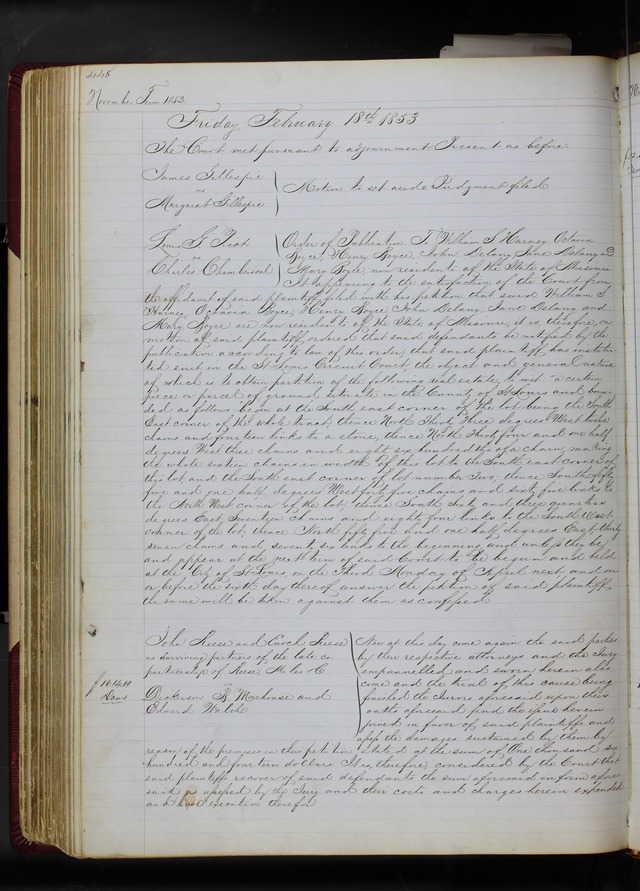 448
November Term 1852
Friday, February 18th 1853
The Court met pursuant to adjournment Present as before
James Gillespie
vs
Margaret Gillespie
Motion to set aside Judgment filed
Louis G Picot
vs
Charles Chambellel
Order of Publication To William S Harney, Octavia
Boyce, Henry Boyce, John Delany Jane Delany and
Mary Boyce non residents of the State of Missouri
It appearing to the satisfaction of the Court from
the affidavit of said plaintiff filed with his petition that said William S.
Harney, Octavia Boyce, Henry Boyce John Delany Jane Delany and
Mary Boyce are non residents of the State of Missouri, it is, therefore, on
motion of said plaintiff, ordered that said defendants be notified by the
publication according to law of this order, that said plaintiff has institu
ted suit in the St Louis Circuit Court the object and general nature
of which is to obtain partition of the following real estate, to wit "a certain
piece or parcel of ground situate in the County of St Louis and boun
ded as follows begin at the South east corner of the lot being the South
East corner of the whole tract, thence North Thirty Three degrees West twelve
chains and fourteen links to a stone, thence North Thirty four and one half
degrees West three chains and eighty six hundredths of a chain, making
the whole sixteen chains in width of this lot to the South east corner of
this lot and the South east corner of lot number Two, thence South fifty
five and one half degrees West forty five chains and sixty five links to
the North West corner of the lot, thence South Sixty and three quarters
degrees East, Seventeen chains and eighty four links to the South West
corner of the lot, thence North fifty five and one half degrees East thirty
seven chains and seventy six links to the beginning" and unless they be
and appear at the next term of said Court to be begun and held
at the City of St Louis, on the Third Monday of April next and on
or before the sixth day thereof answer the petition of said plaintiff
the same will be taken against them as confessed
John Reese and Reese
as surviving partners of the late co
partnership of Reese &C
vs
Dickerson B Morehouse and
Edward Walsh
$1614.00
Dams
Now at this day come again the said parties
by their respective attorneys and the Jury
impannelled and sworn herein also
come and the trial of this cause being
finished the Jurors aforesaid upon their
oaths aforesaid find the issue herein
joined in favor of said plaintiffs and
assess the damages sustained by them by
reason of the premises in their petition stated at the sum of One thousand six
hundred and fourteen dollars. It is, therefore considered by the Court that
said plaintiffs recover of said defendants the sum aforesaid in form afore
said assessed by the Jury and their costs and charges herein expended
and have execution therefor